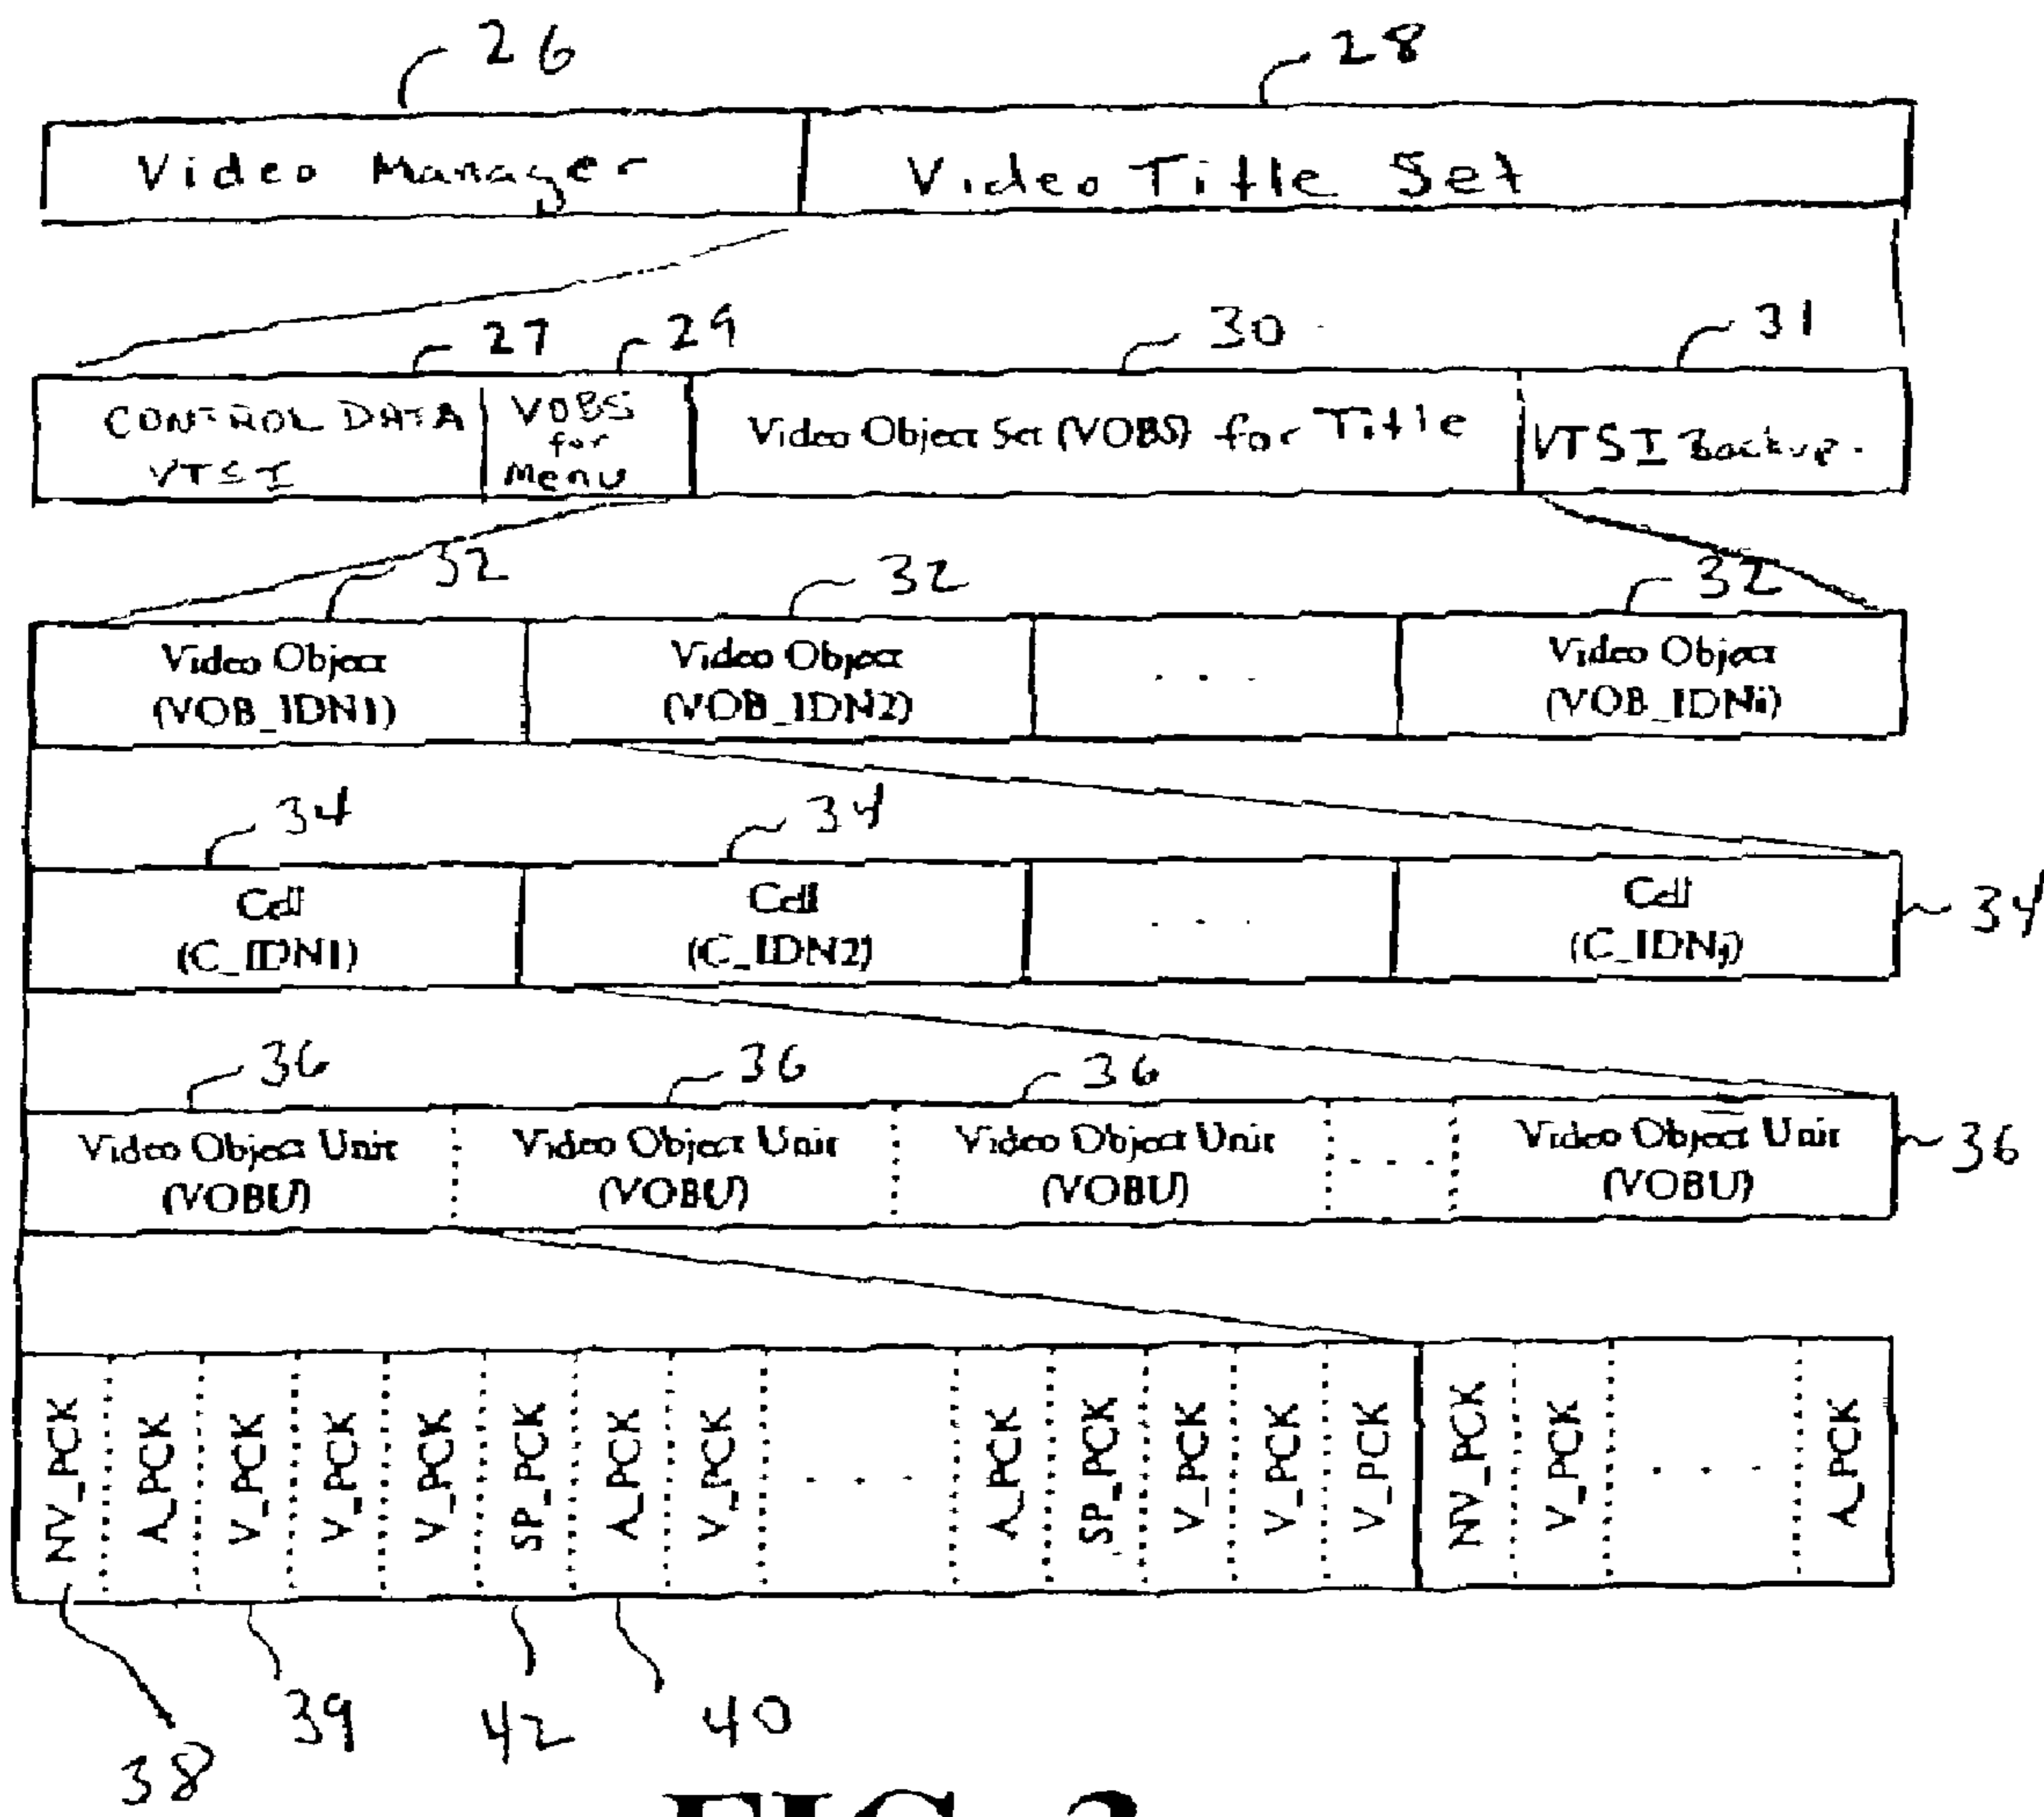 26 28
Video Manager Video Title Set
27 29 30 31
CONTROL DATA VTSI VOBS for Menu Video Object Set (VOBS) for Title VTSI Backup.
32 32 32
Video Object Video Object Video Object
(VOB_IDN1) (VOB_IDN2) . . . . (VOB_IDNi)
34 34
Cell Cell Cell
(C_IDN1) (C_IDN2) . . . . (C_IDNj) 34
36 36 36
Video Object Unit Video Object Unit Video Object Unit Video Object Unit 36
(VOBU) (VOBU) (VOBU) . . . . (VOBU)
NV_PCK A_PCK V_PCK V_PCK V_PCK SP_PCK A_PCK V_PCK . . . . A_PCK SP_PCK V_PCK V_PCK V_PCK NV_PCK V_PCK . . . . A_PCK
38 39 42 40
FIG. 3